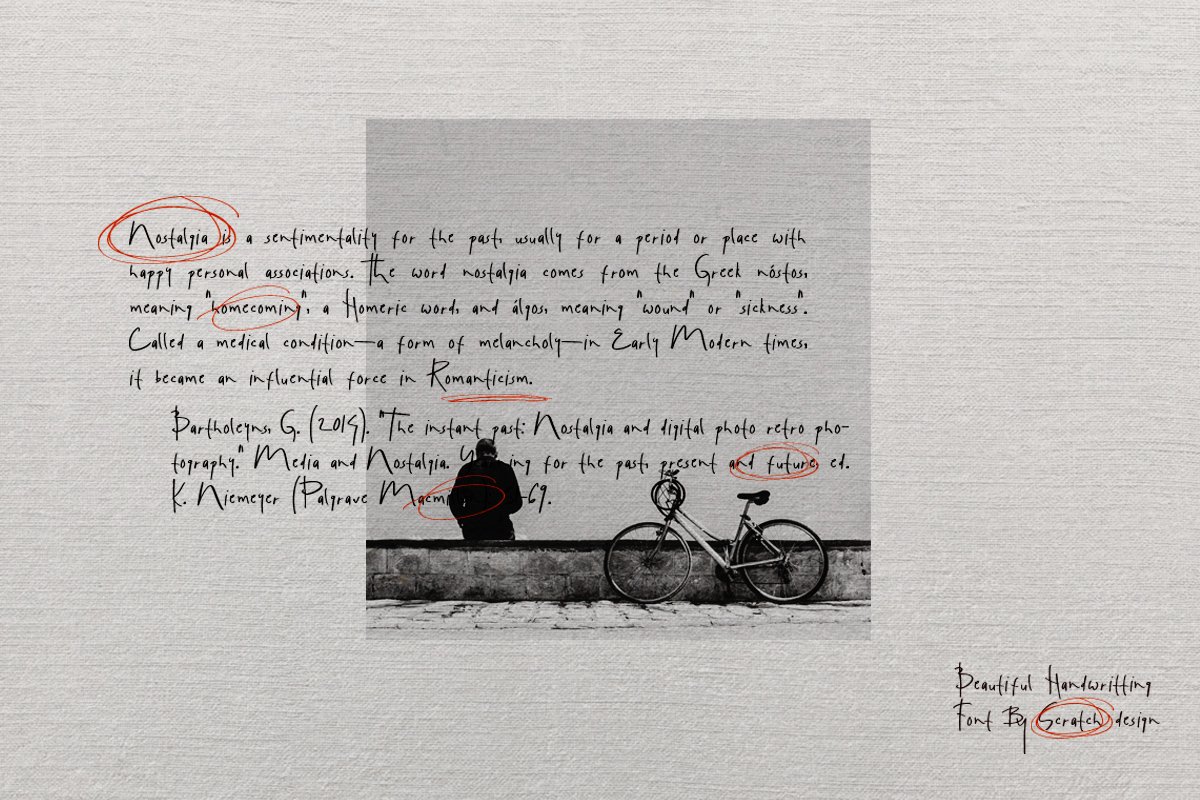 Nostalgia is a sentimentality for the past, usually for a period or place with
happy personal associations. The word nostalgia comes from the Greek nóstos,
meaning "homecoming", a Homeric word, and álgos, meaning "wound" or "sickness".
Called a medical condition—a form of melancholy—in Early Modern times,
it became an influential force in Romanticism.
Bartholeyns, G. (2014). "The instant past: Nostalgia and digital photo retro pho-
tography." Media and Nostalgia. for the past, present and future, ed.
K. Niemeyer (Palgrave -69.
Beautiful Handwritting
Font By Scratch design